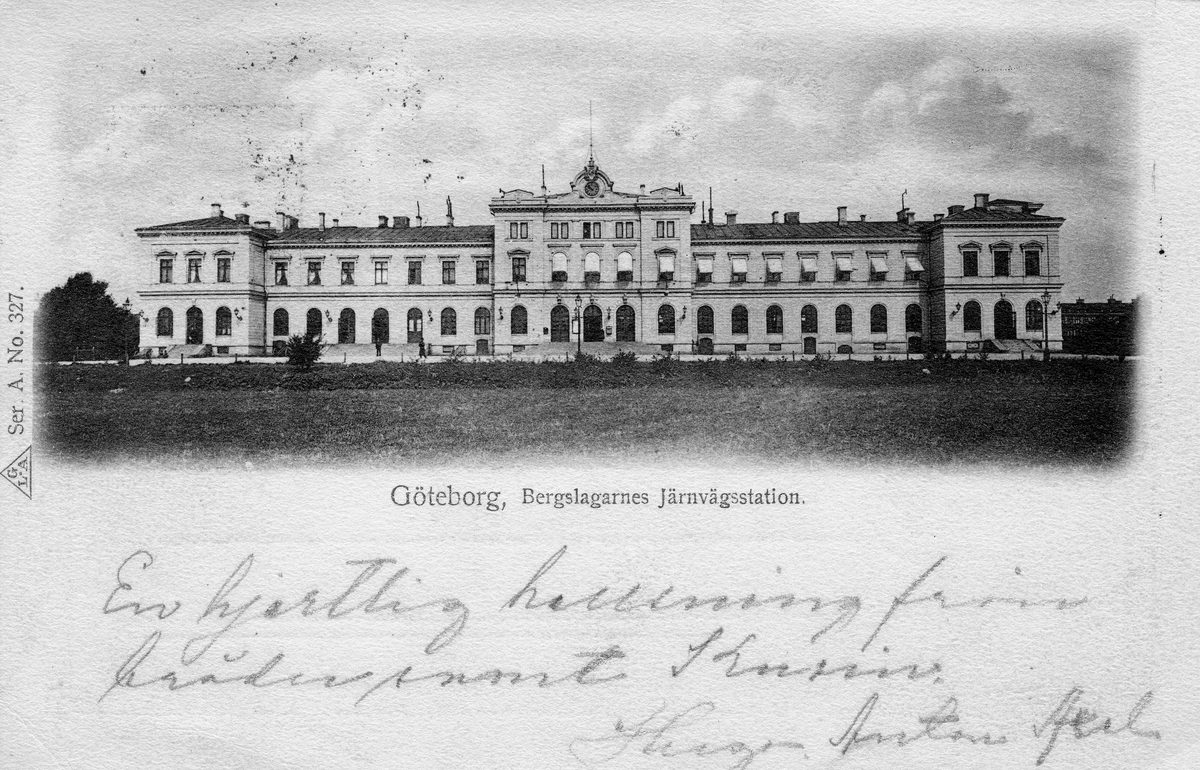 Ser. A. No. 327.
G
L A
Göteborg, Bergslagarnes Järnvägsstation.
En hjertlig hellsning från
bröder samt
Hugo Anton Axel